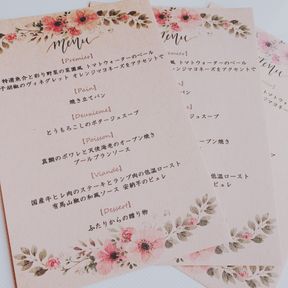 menu
【Premier】
特選魚介と彩り野菜の菜園風 トマトウォーターのベール
子胡椒のヴィネグレット オレンジマヨネーズをアクセントで
【Pain】
焼き立てパン
【Deuxieme】
とうもろこしのポタージュスープ
【Poisson】
真鯛のポワレと天使海老のオーブン焼き
ブールブランソース
【Viande】
国産牛ヒレ肉のステーキとランプ肉の低温ロースト
有馬山椒の和風ソース 安納芋のピュレ
【Dessert】
ふたりからの贈り物
menu
【Premier】
風 トマトウォーターのベール
レンジマヨネーズをアクセントで
ポタージュスープ
オーブン焼き
低温ロースト
ピュレ